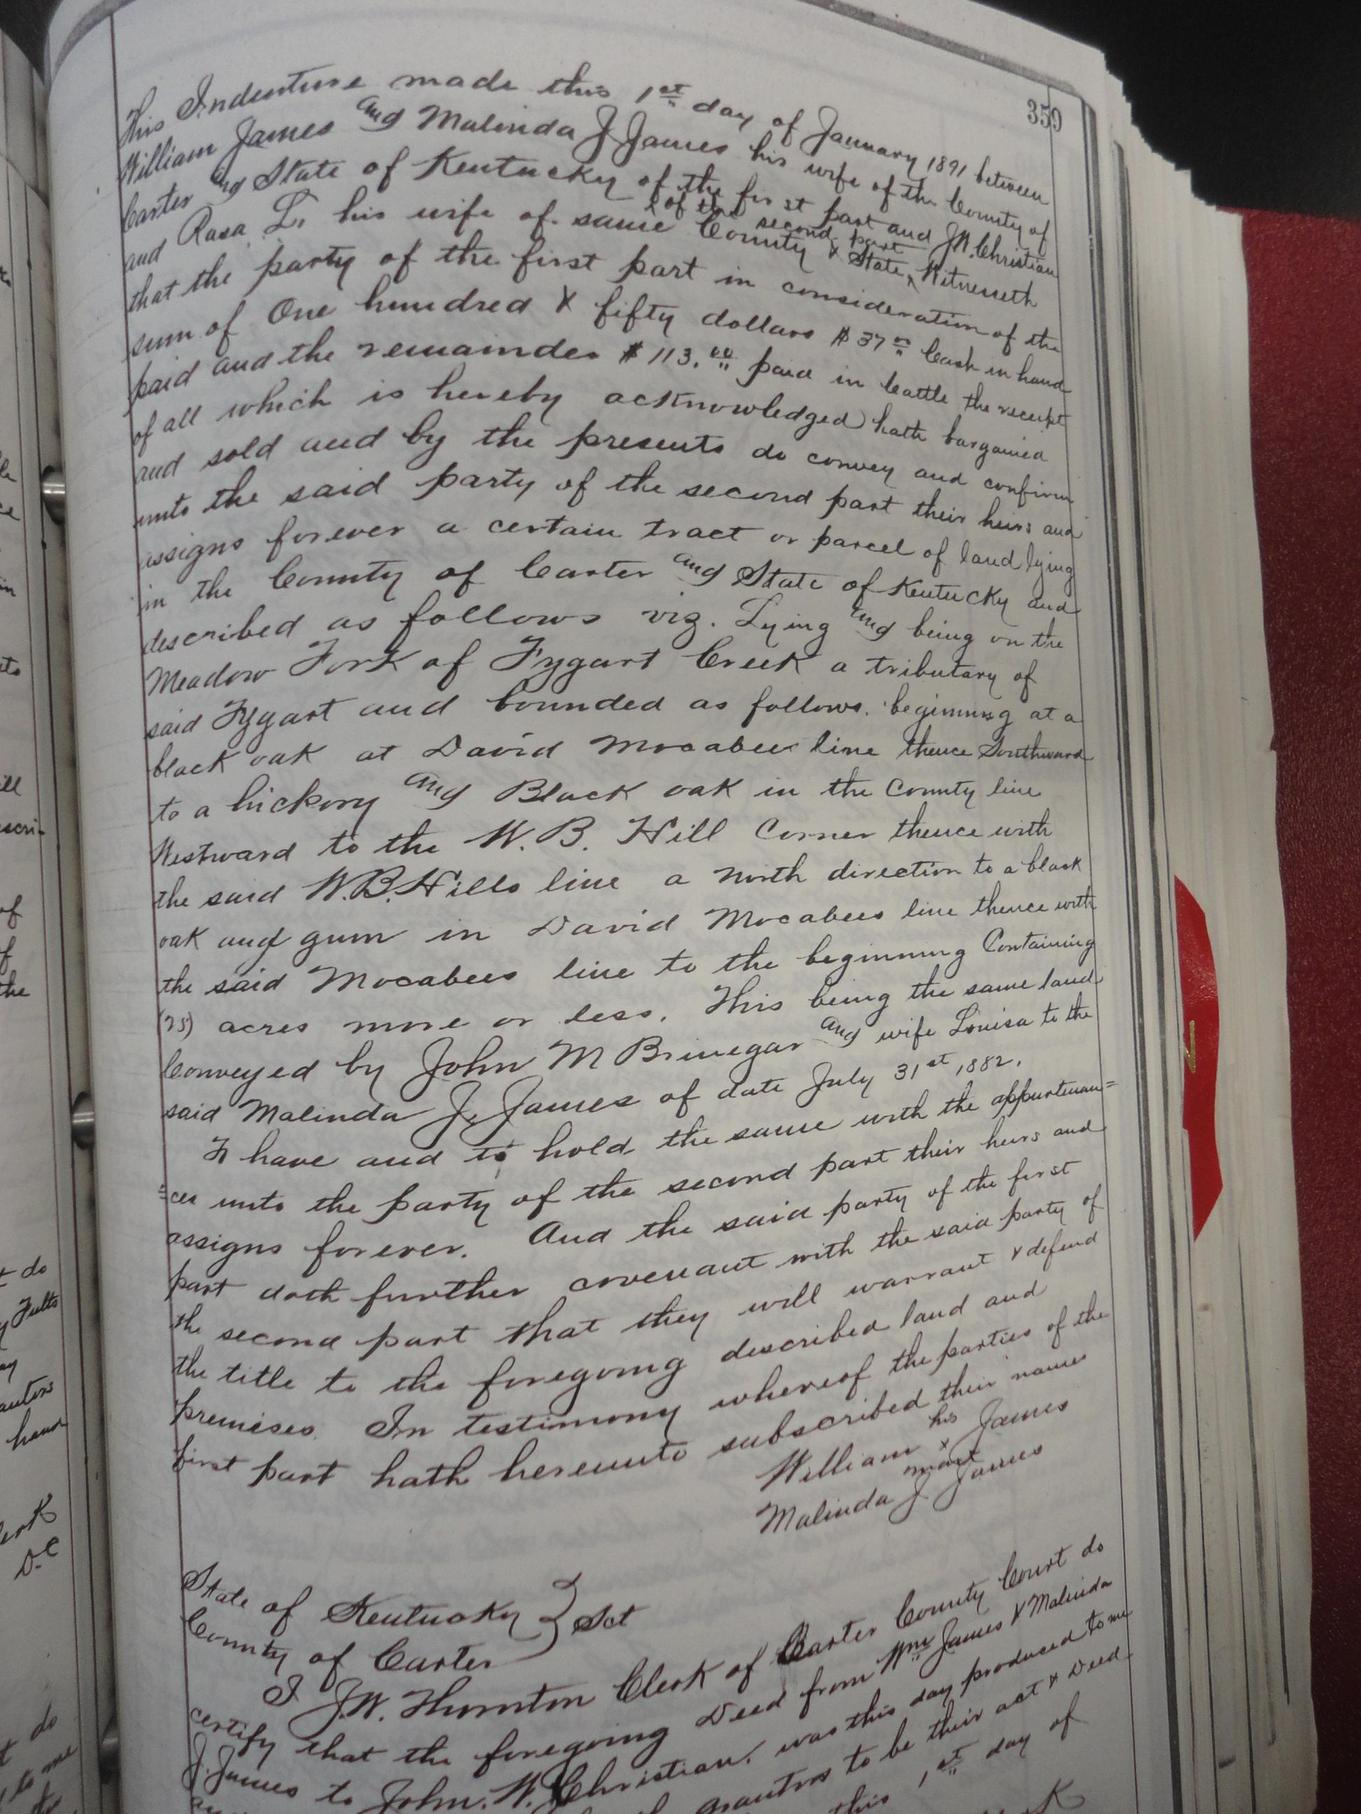 359
This Indenture made this 1st day of January 1891 between
William James and Malinda J. James his wife of the County of
Carter and State of Kentucky of the first part and J.W. Christian
and Rosa L. his wife of same County & State, of the second part Witnesseth
that the party of the first part in consideration of the
sum of One hundred & fifty dollars $37.00 Cash in hand
paid and the remainder $113.00 paid in Cattle the receipt
of all which is hereby acknowledged hath bargained
and sold and by the presents do convey and confirm
unto the said party of the second part their heirs and
assigns forever a certain tract or parcel of land lying
in the County of Carter and State of Kentucky and
described as follows viz. Lying and being on the
Meadow Fork of Tygart Creek a tributary of
said Tygart and bounded as follows. beginning at a
black oak at David Mocabees line thence Southward
to a hickory and Black oak in the County line
Westward to the W. B. Hill Corner thence with
the said W. B. Hills line a north direction to a black
oak and gum in David Mocabees line thence with
the said Mocabees line to the beginning Containing
(75) acres more or less. This being the same land
Conveyed by John M Brinegar and wife Louisa to the
said Malinda J. James of date July 31st 1882.
To have and to hold the same with the appurtenan=
=ces unto the party of the second part their heirs and
assigns forever. And the said party of the first
part doth further covenant with the said party of
the second part that they will warrant & defend
the title to the foregoing described land and
premises. In testimony whereof the parties of the
first part hath hereunto subscribed their names
William his x mark James
Malinda J James
State of Kentucky } Sct
County of Carter
I J.W. Thornton Clerk of Carter County Court do
certify that the foregoing Deed from Wm James & Malinda
J. James to John. W. Christian, was this day produced to me
grantors to be their act & Deed
this 1st day of